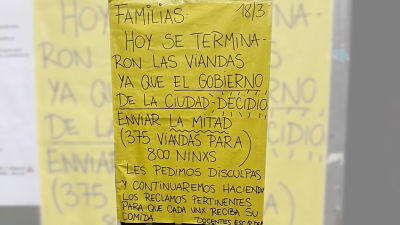 FAMILIAS 18/3
HOY SE TERMINA-
RON LAS VIANDAS
YA QUE EL GOBIERNO
DE LA CIUDAD DECIDIÓ
ENVIAR LA MITAD
(375 VIANDAS PARA
800 NIÑXS)
LES PEDIMOS DISCULPAS
Y CONTINUAREMOS HACIENDO
LOS RECLAMOS PERTINENTES
PARA QUE CADA UNX RECIBA SU
COMIDA
DOCENTES